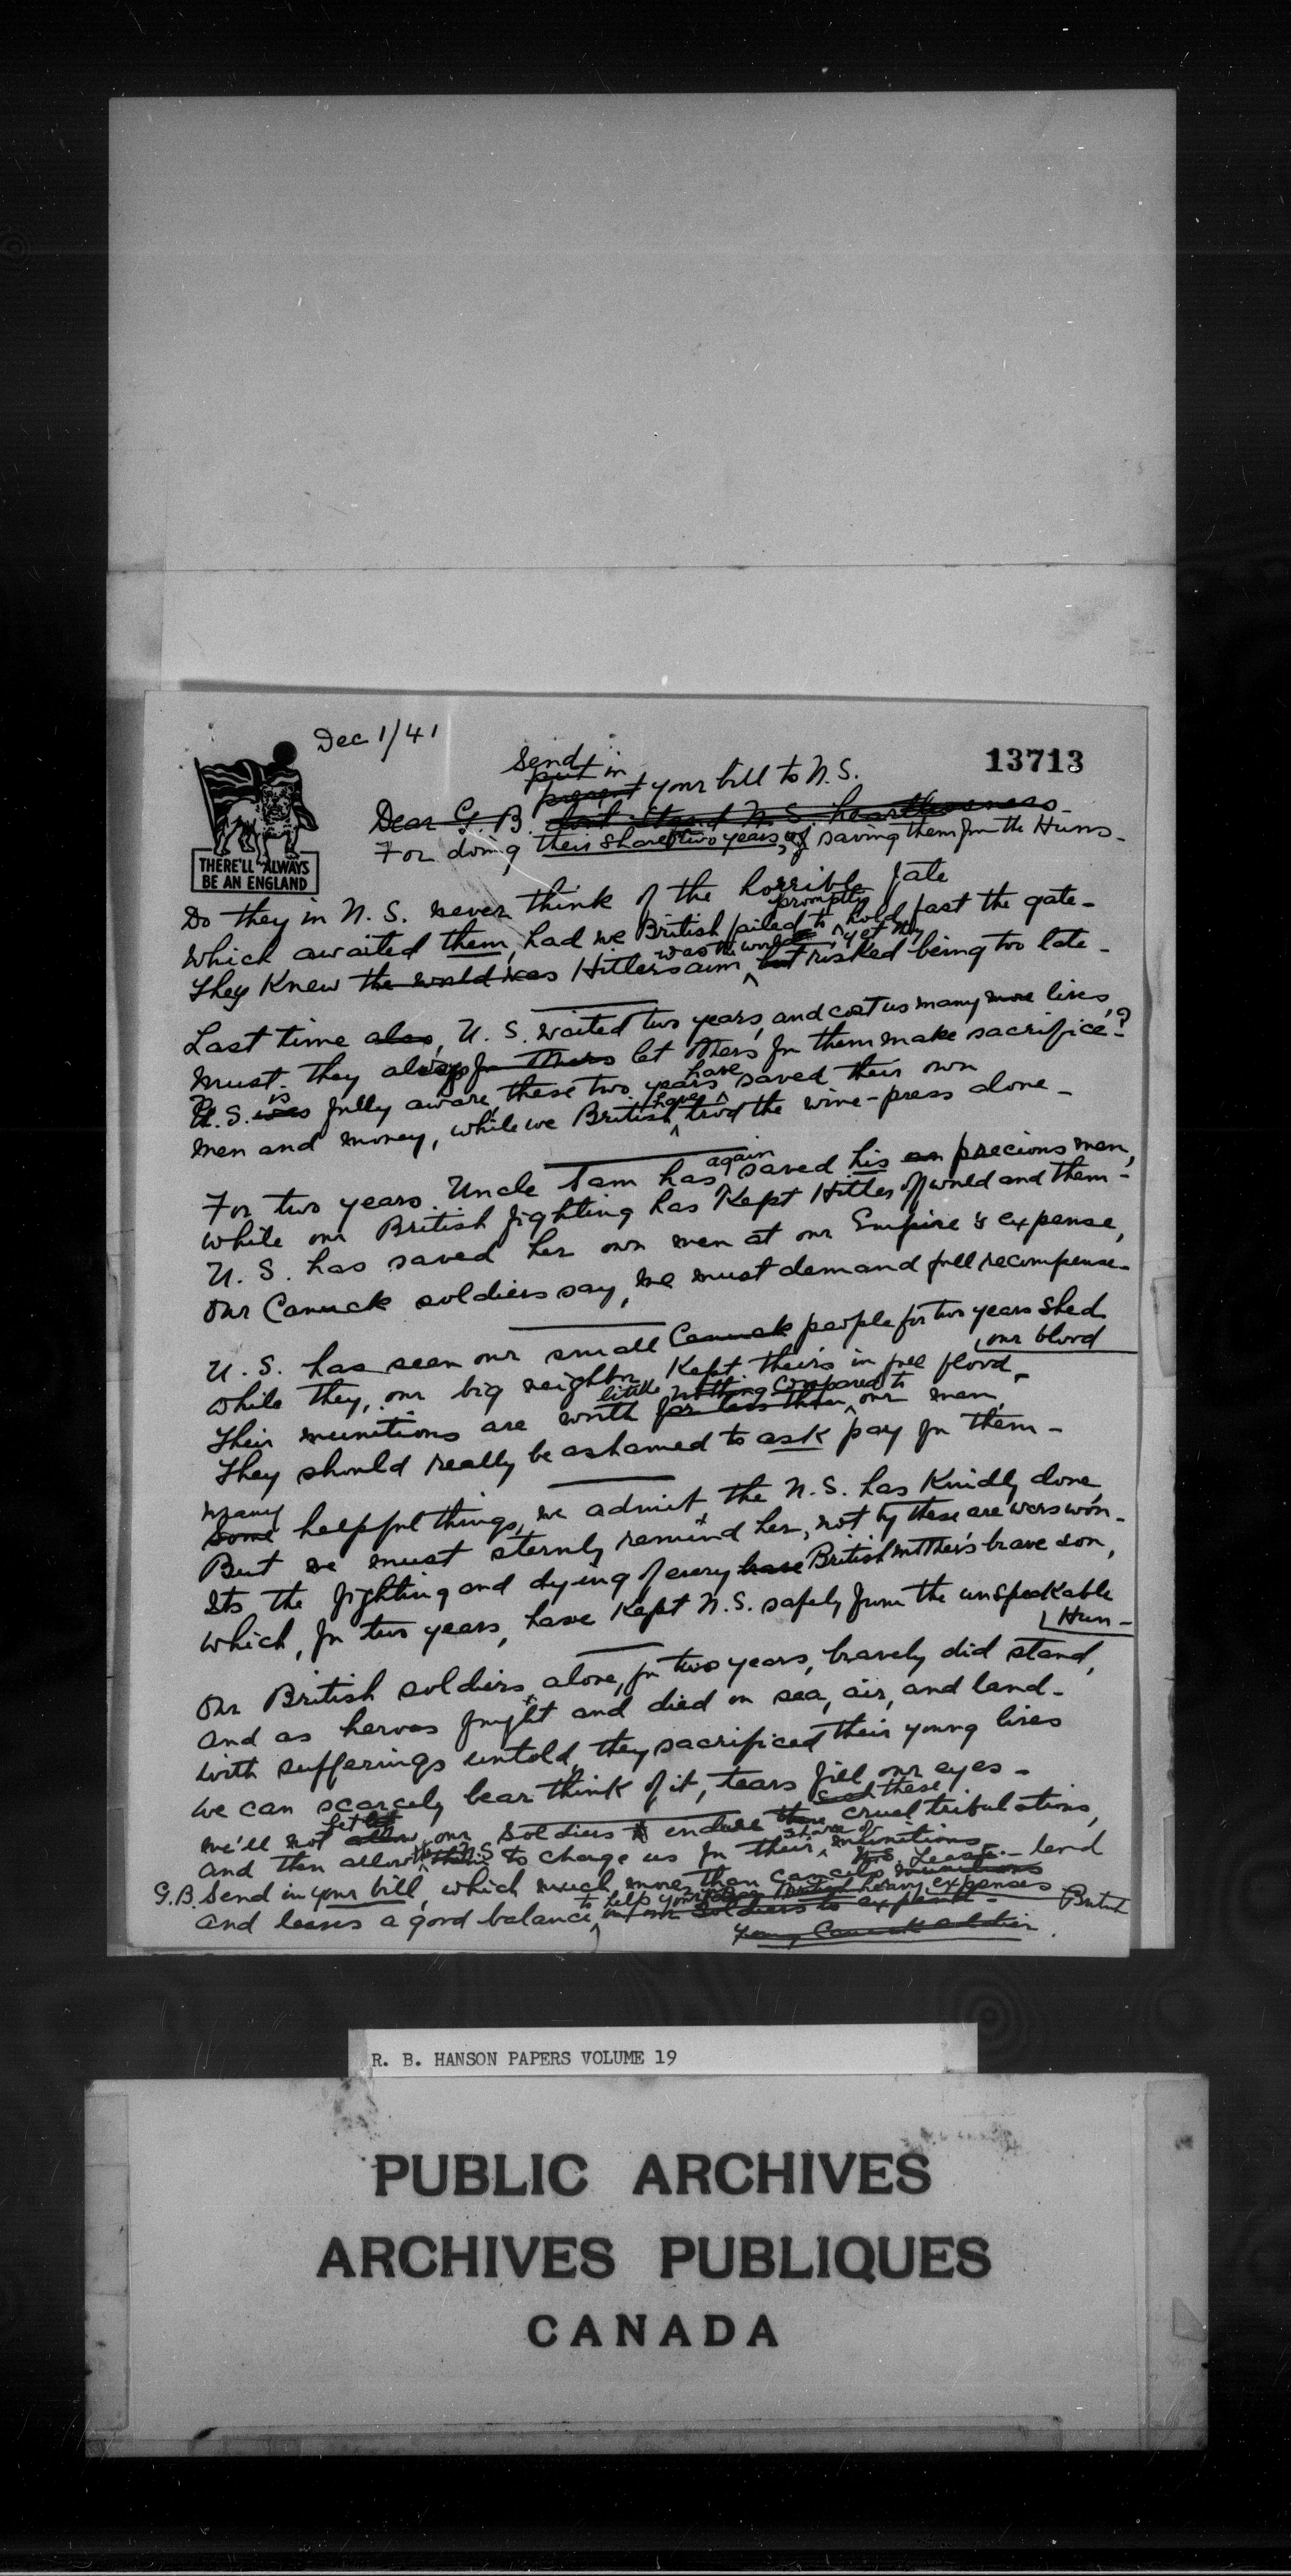 Dec 1/41
13713
THERE'LL ALWAYS
BE AN ENGLAND
Send
put in
present your bill to U.S.
Dear G. B. dont stand U.S. heartlessness-
For doing their share two years, of saving them from the Huns-
Do they in U.S. never think of the horrible fate
which awaited them, had we British failed to promptly hold fast the gate-
They knew the world was Hitlers aim was the world, but yet they risked being too late-
Last time also, U. S. waited two years, and cost us many more lives,
must they always for others let others for them make sacrifice?
U.S. was is fully aware, these two years have saved their own
men and money, while we British have trod the wine-press alone-
For two years Uncle Sam has again saved his precious men,
while our British fighting has kept Hitler off world and them-
U. S. has saved her own men at our Empire's expense,
Our Canuck soldiers say, we must demand full recompense-
U. S. has seen our small Canuck people for two years shed
our blood
while they, our big neighbor kept theirs in full flood,-
Their munitions are worth far less than little nothing compared to our men,
They should really be ashamed to ask pay for them-
many
Some helpful things, we admit the U.S. has kindly done,
But we must sternly remind her, not by these are wars won-
Its the fighting and dying of every brave British mother's brave son,
which, for two years, have kept U.S. safely from the unspeakable
Hun-
Our British soldiers, alone, for two years, bravely did stand,
and as heroes fought and died on sea, air, and land-
with sufferings untold, they sacrificed their young lives
we can scarcely bear think of it, tears fill our eyes-
we'll not allow let our soldiers to endure such these cruel tribulations,
and then allow the U.S. to charge us for their share of munitions-
G.B. Send in your bill, which much more than cancels Lease-lend
and leaves a good balance, to help your heavy expenses British
in our soldiers to expend-
Young Canuck soldier.
R. B. HANSON PAPERS VOLUME 19
PUBLIC ARCHIVES
ARCHIVES PUBLIQUES
CANADA